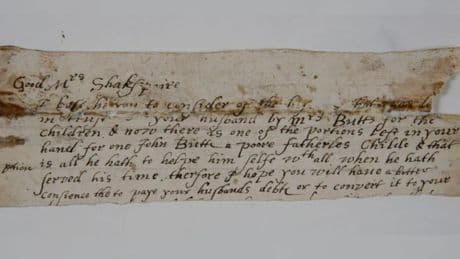 Good Mrs Shakspaire
to consider of the
in your husband by mrs Butts for the
children & now there is one of the portions in your
hand for one John Butts a poore fatherles Childe & that
ption is all he hath to helpe him selfe wthall when he hath
served his time therfore I hope you will have a better
Consience the to paye your husbands debt or to convert it to your